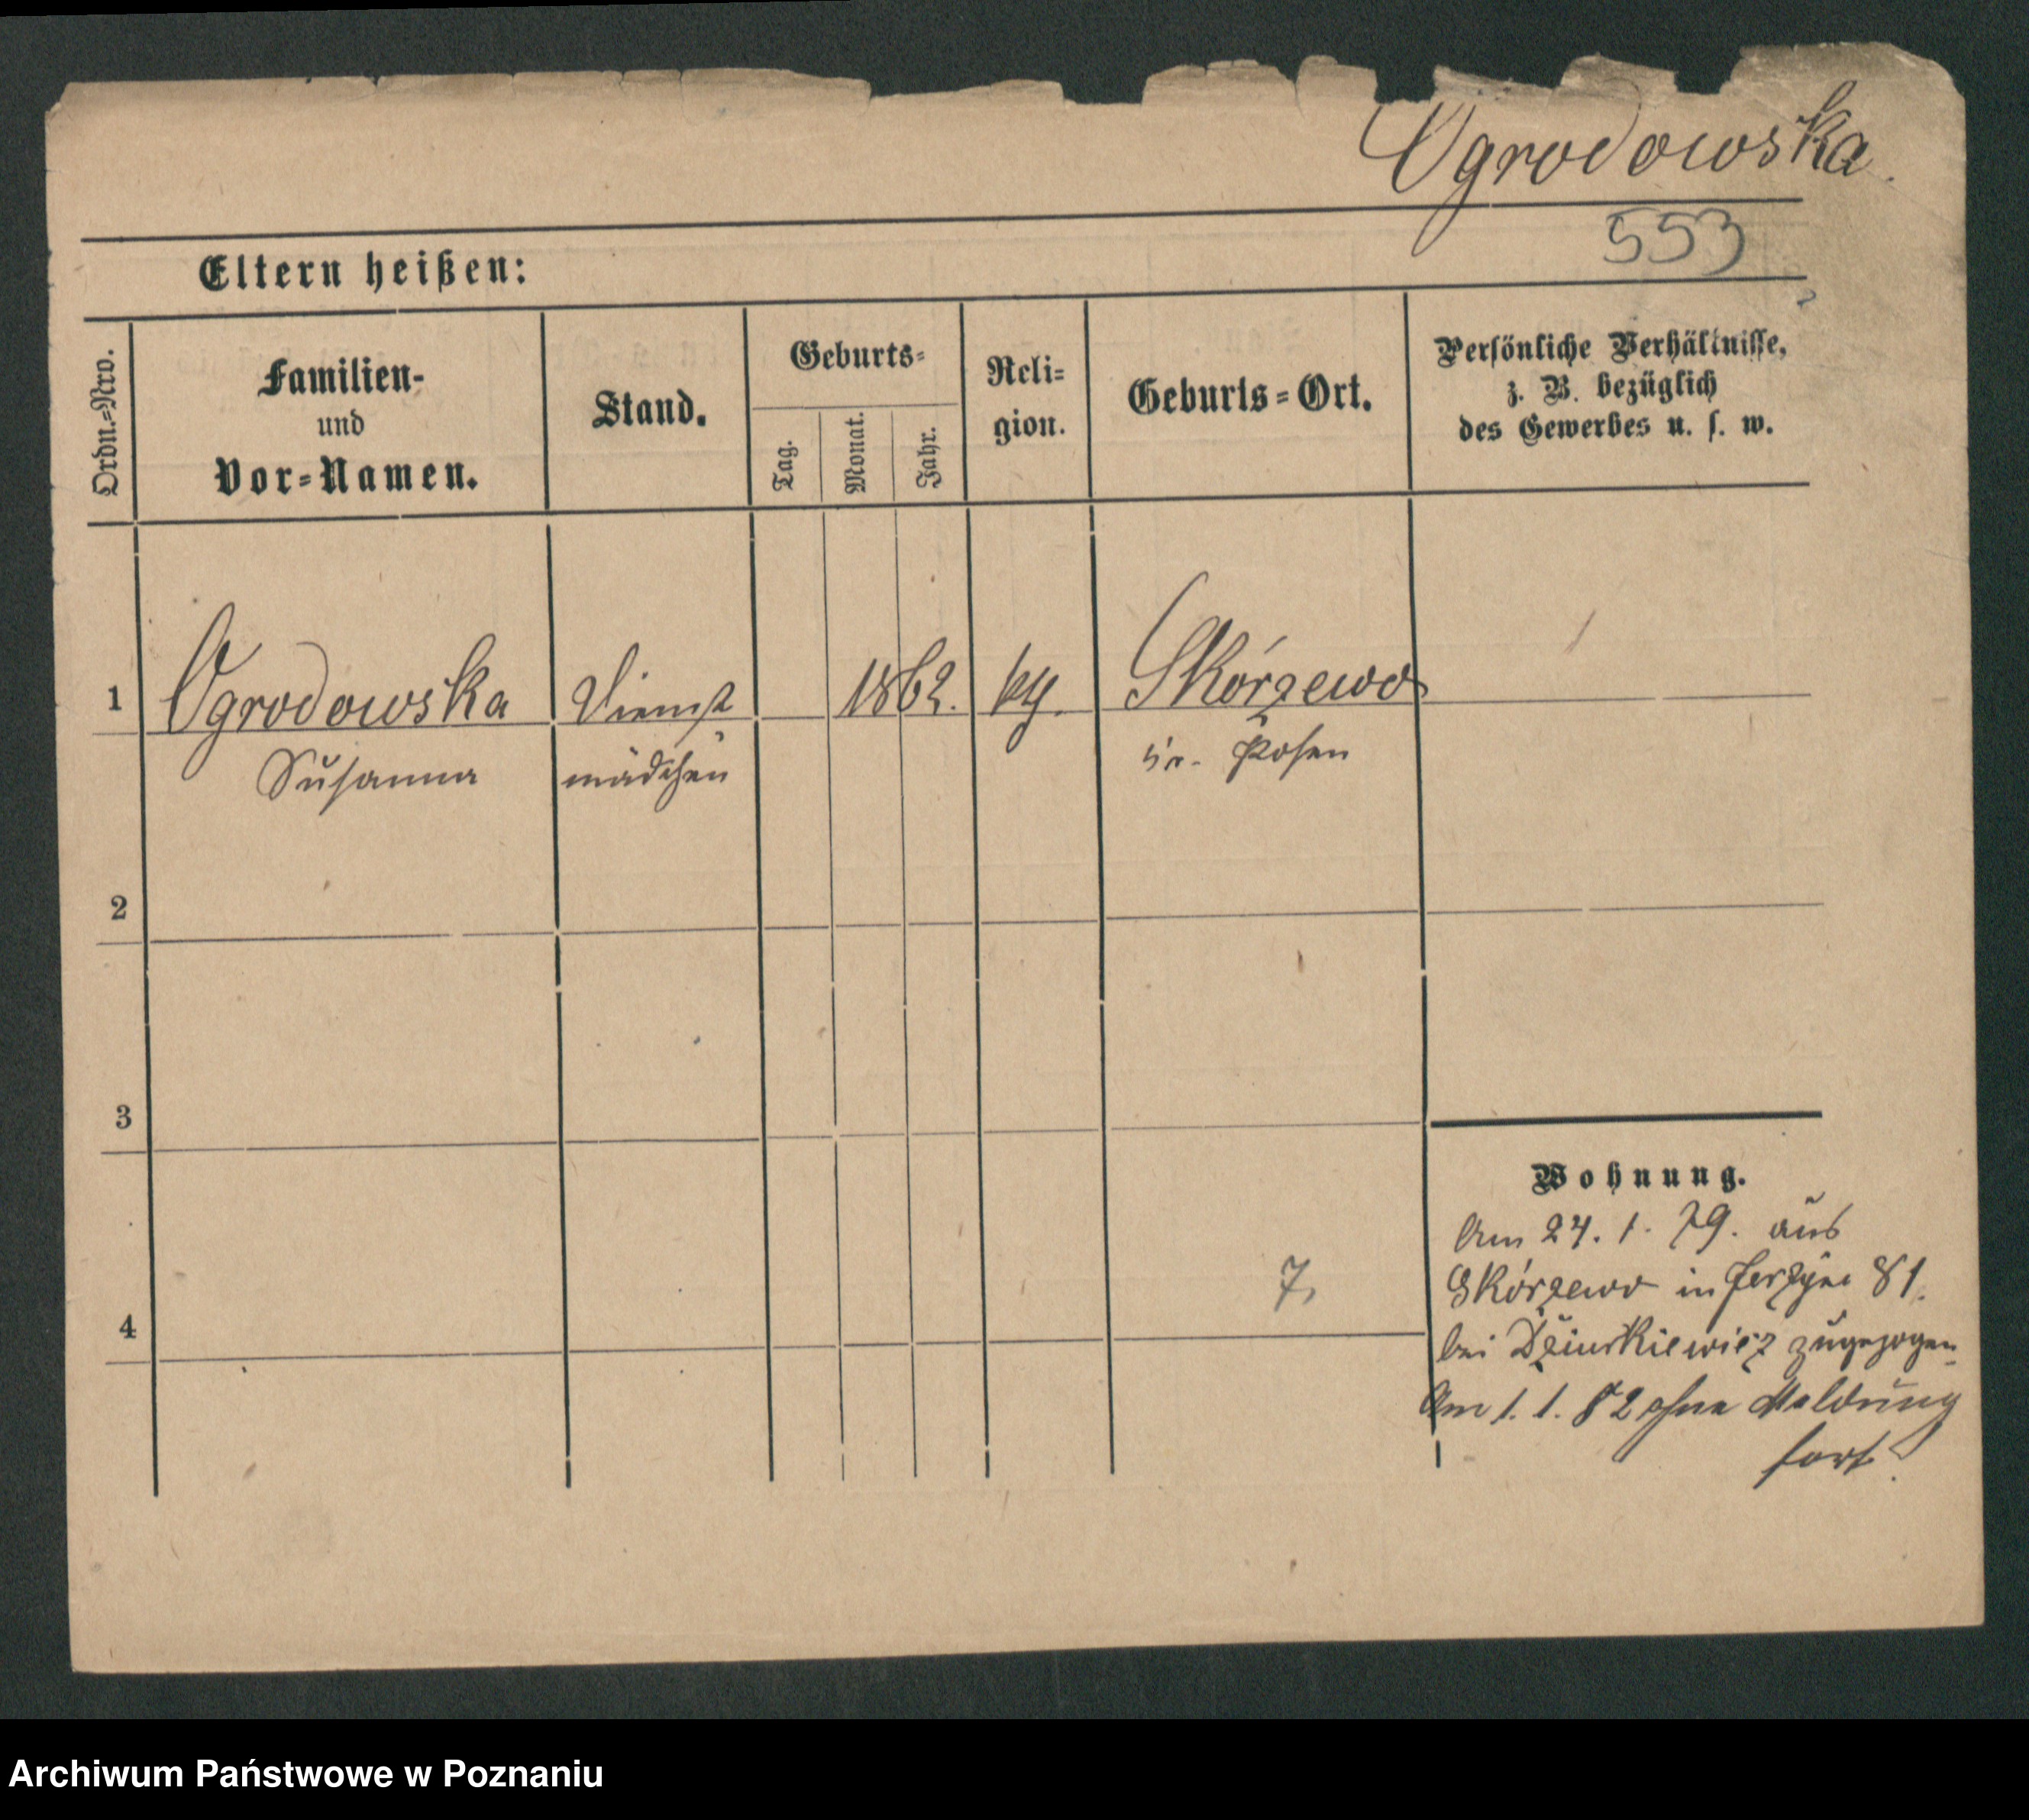 Ogrodowska.
553
Eltern heißen:
Ordn.-Nro.
Familien-
und
Vor-Namen.
Stand.
Geburts-
Tag.
Monat.
Jahr.
Reli-
gion.
Geburts-Ort.
Persönliche Verhältnisse,
z. B. bezüglich
des Gewerbes u. s. w.
1 Ogrodowska Dienst 1862. Skórzewo
Susanna mädchen Posen
2
3
Wohnung.
Am 24. 1. 79. aus
Skórzewo in 81.
7,
4
bei Dziurkiewicz zugezogen
Am 1. 1. 82 ohne Meldung
fort.
Archiwum Państwowe w Poznaniu